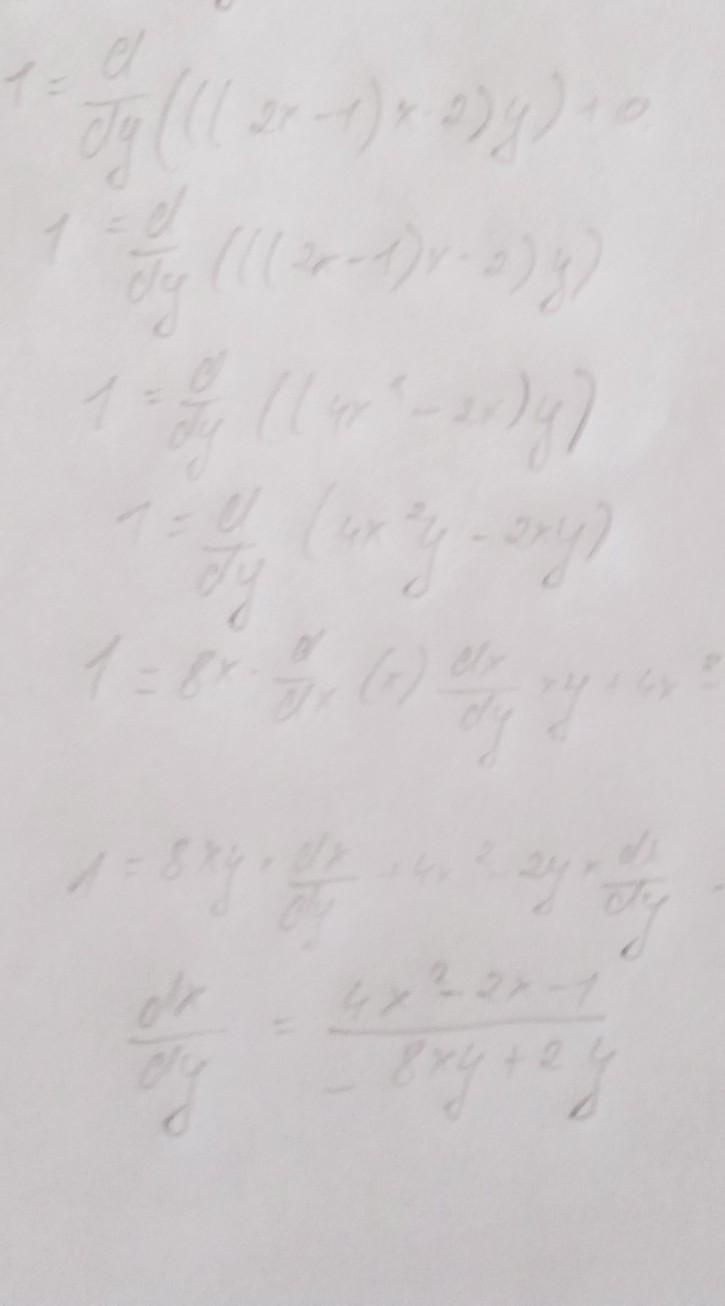 1 = d/dy (((2x-1)x·2)y)+0
1 = d/dy (((2x-1)x·2)y)
1 = d/dy ((4x²-2x)y)
1 = d/dy (4x²y-2xy)
1 = 8x · d/dx (x) dx/dy × y + 4x²
1 = 8xy × dx/dy + 4x² - 2y × dx/dy -
dx/dy = 4x²-2x-1 / -8xy+2y